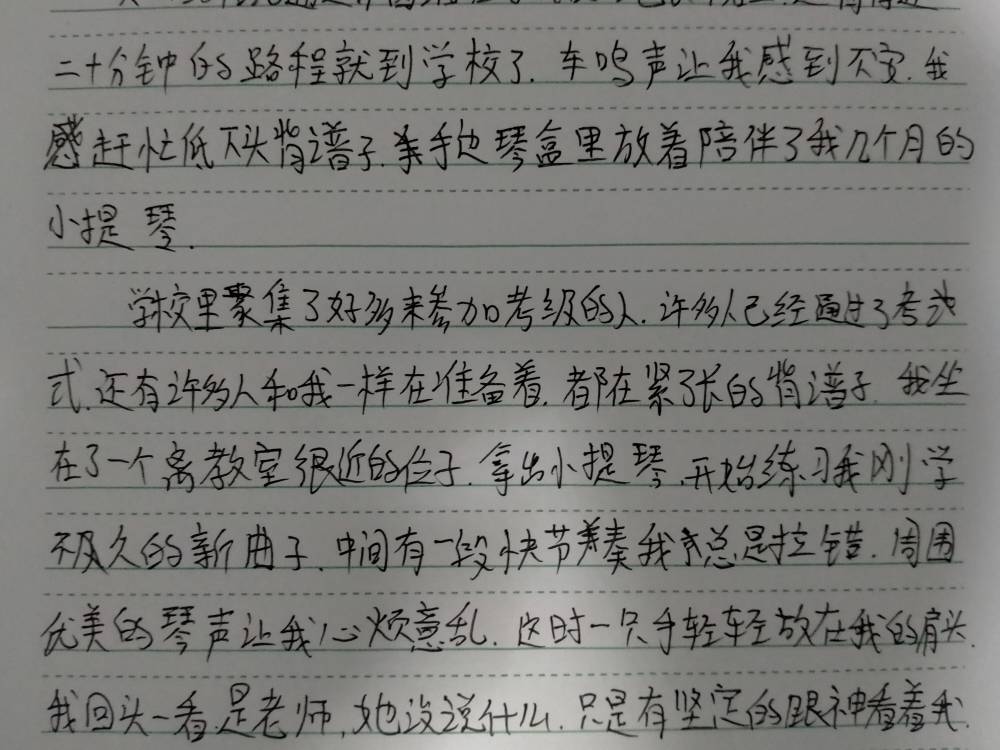 二十分钟的路程就到学校了.车鸣声让我感到不安.我
感赶忙低下头背谱子.手边琴盒里放着陪伴了我几个月的
小提琴.
学校里聚集了好多来参加考级的人.许多人已经通过了考试
式.还有许多人和我一样在准备着.都在紧张的背谱子.我坐
在了一个离教室很近的位子.拿出小提琴.开始练习我刚学
不久的新曲子.中间有一段快节奏我总是拉错.周围
优美的琴声让我心烦意乱.这时一只手轻轻放在我的肩头.
我回头一看是老师,她没说什么.只是有坚定的眼神看着我.